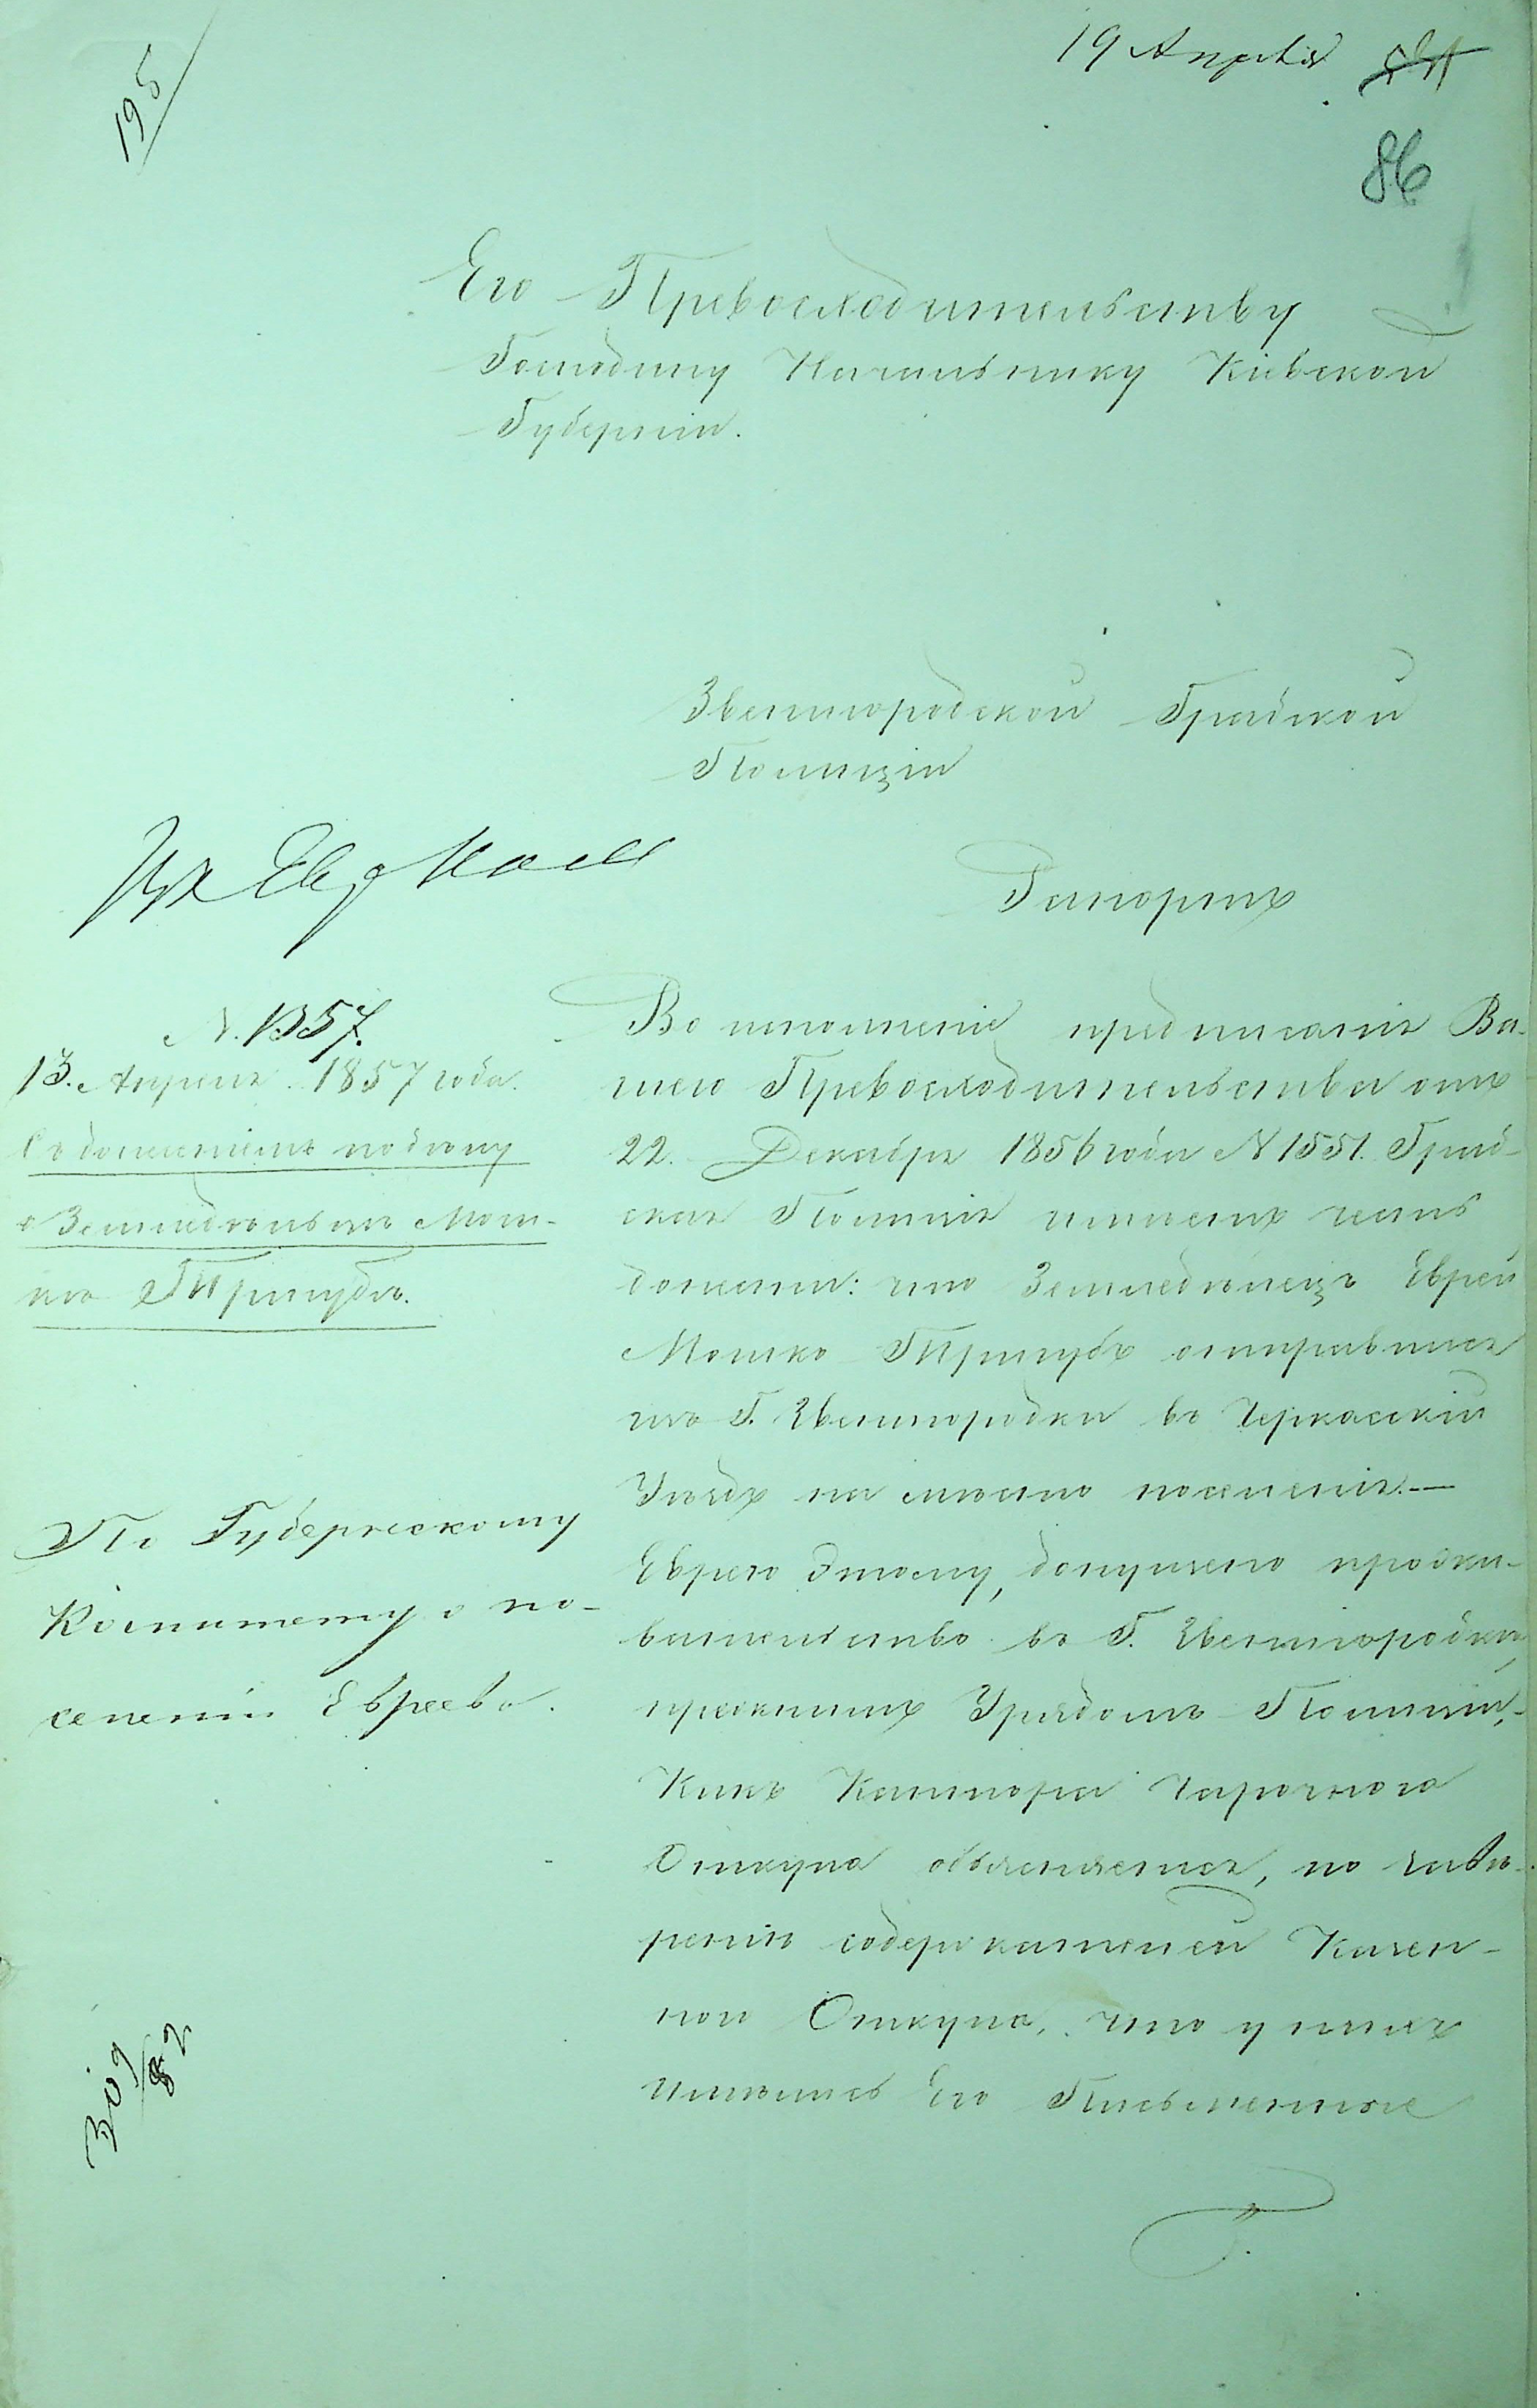 195
19 Апреля
86
Его Превосходительству
Господину Начальнику Киевской
Губернiи.
Звенигородской Градской
Полицiи
Рапортъ
N. 1357.
13. Апреля 1857 года.
Съ донесенiемъ по делу
о Земледѣльцѣ Мош-
кѣ Пригубѣ.
По Губернскому
Комитету о по-
селенiи Евреевъ.
309/82
Во исполненiе предписанiя Ва-
шего Превосходительства отъ
22. Декабря 1856 года N 1551. Град-
ская Полицiя имѣетъ честь
донести: что Земледѣлецъ Еврей
Мошко Пригубъ отправился
изъ Г. Звенигородки въ Черкасскiй
Уѣздъ на мѣсто поселенiя. —
Еврею Этому, допущено прожи-
вательство въ Г. Звенигородкѣ,
прежнимъ Урядомъ Полицiи,
Какъ Контора Чарочного
Откупа объясняется, по
содержателей
Откупа, что у нихъ
имѣлись Его Письменные